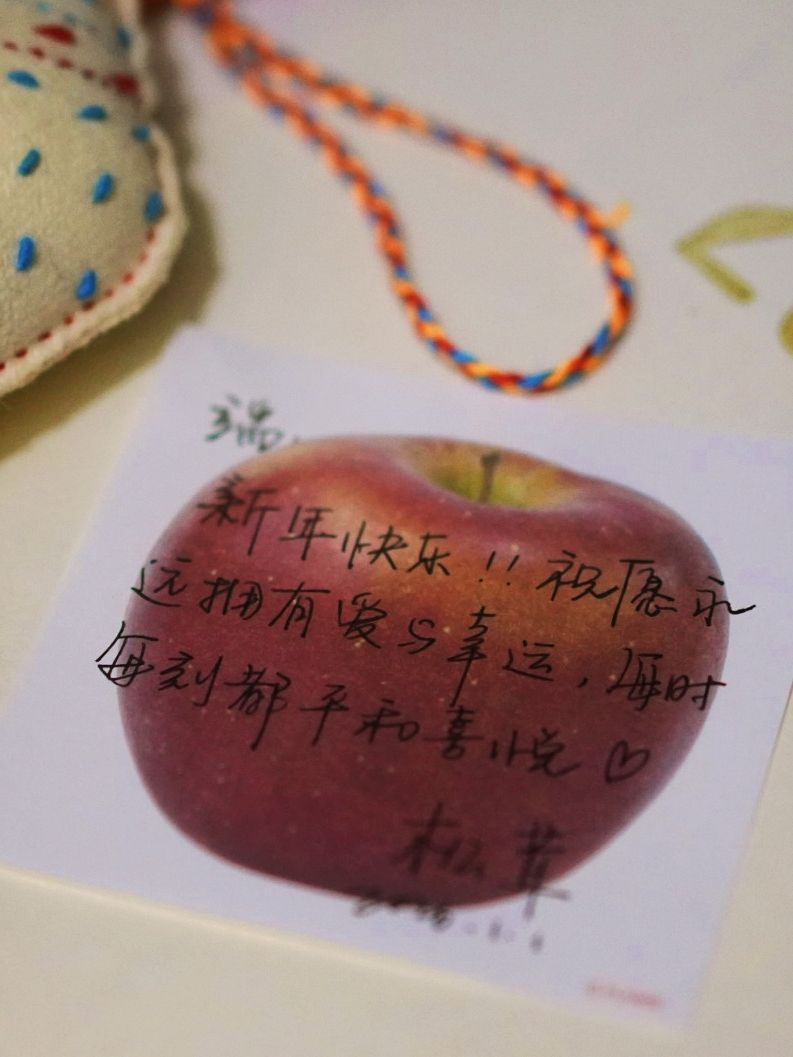 瑞:
新年快乐!! 祝愿永
远拥有爱与幸运,每时
每刻都平和喜悦♡
松茸